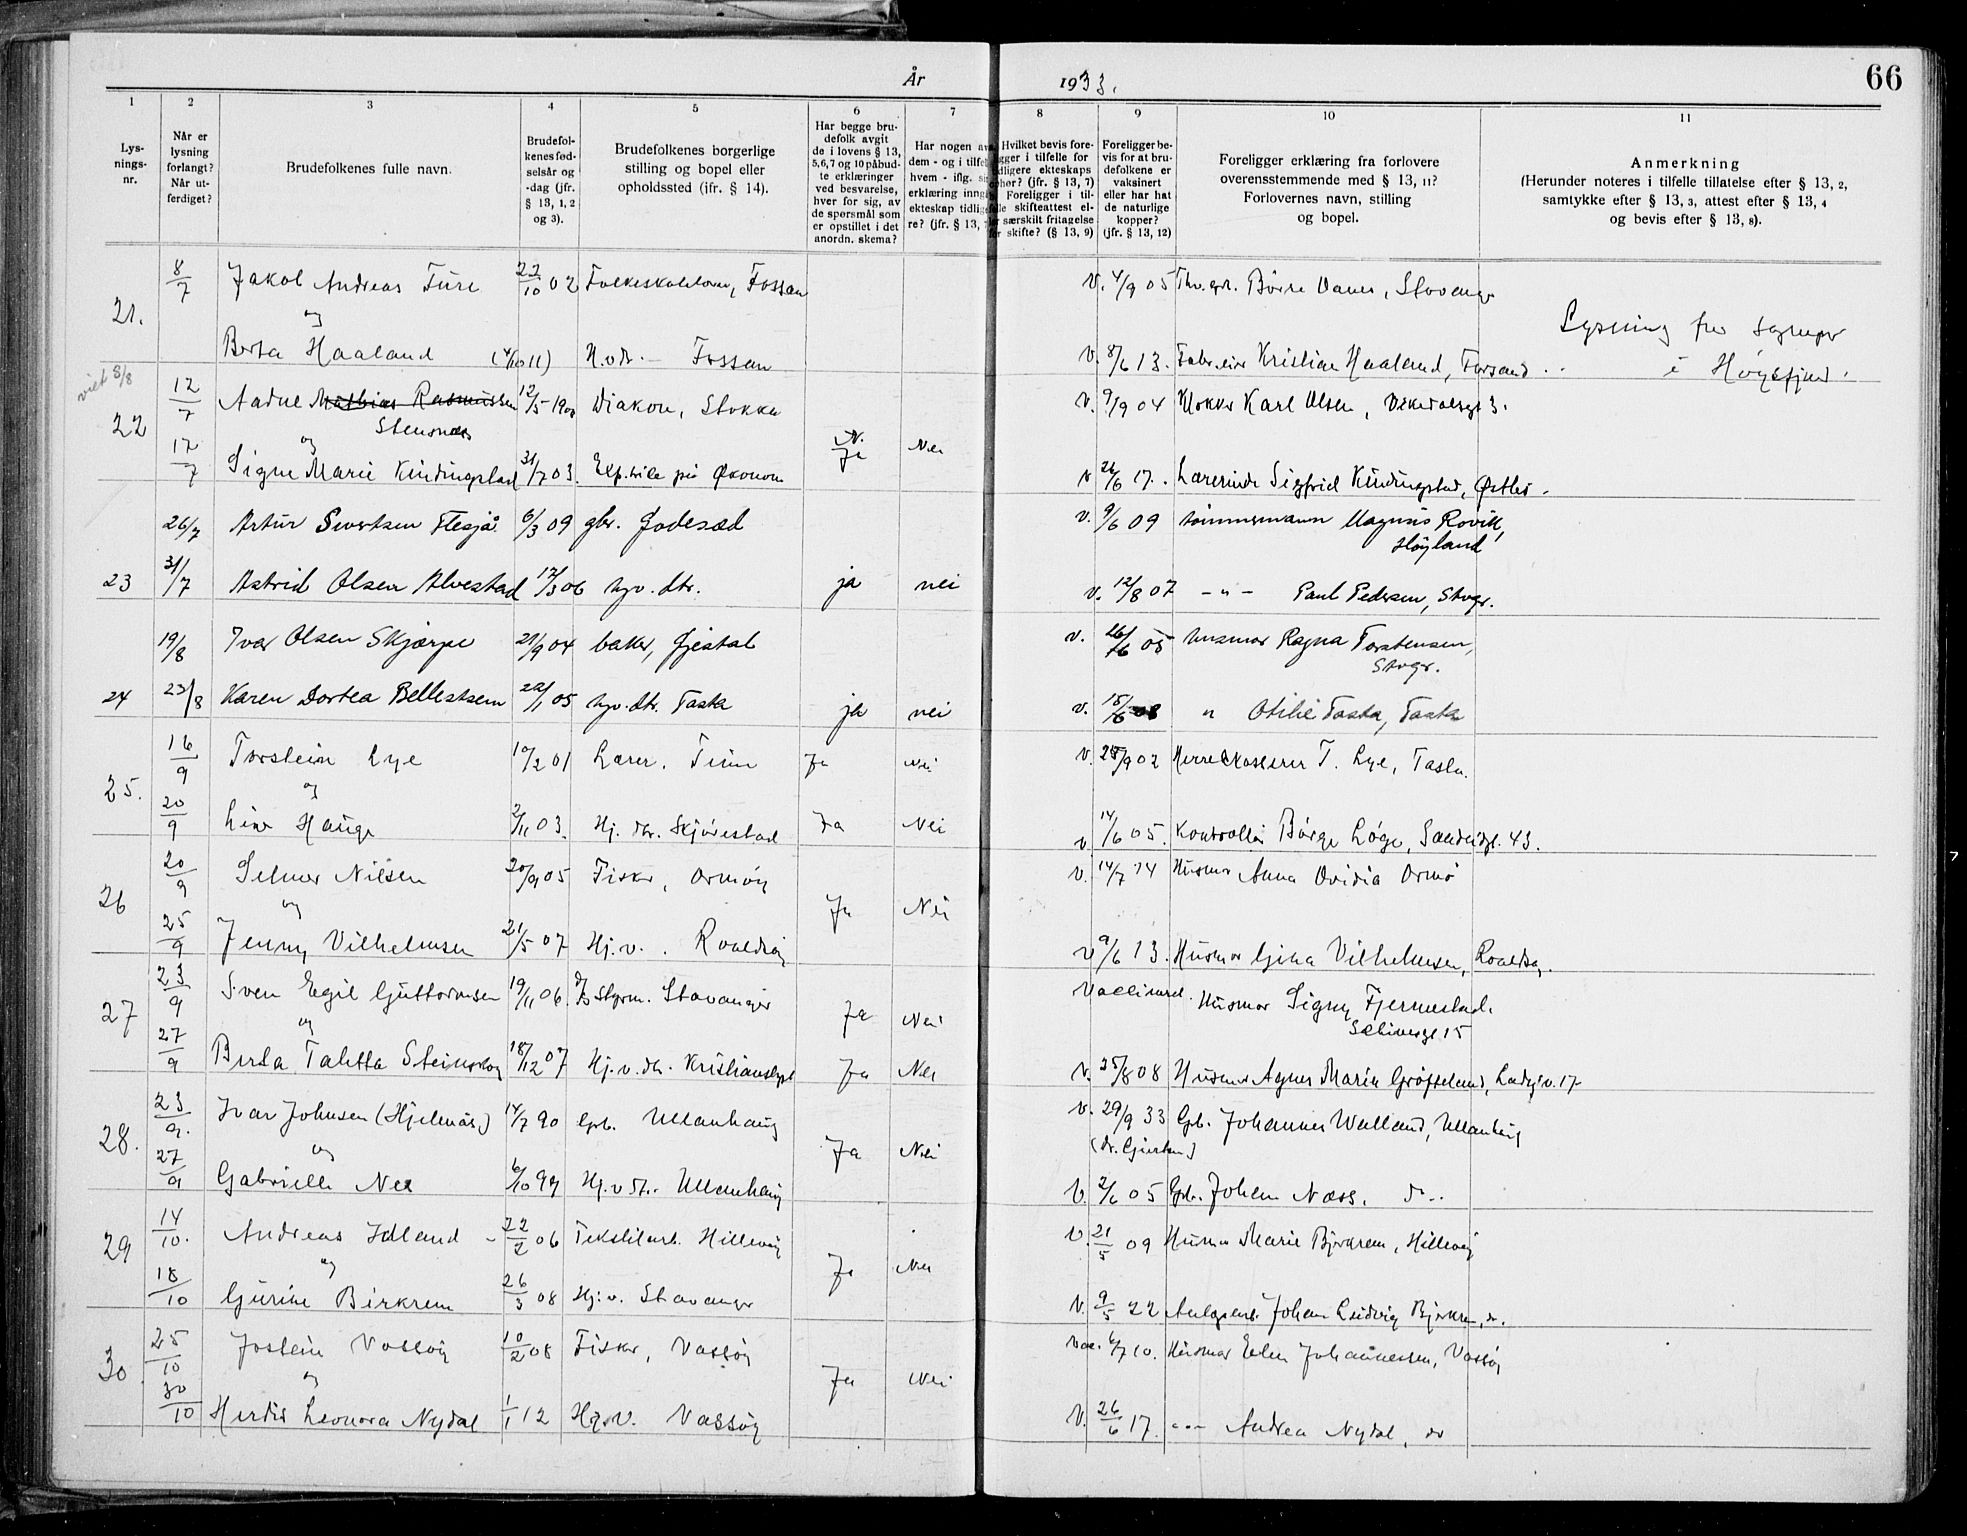 År 1933.
66
1 2 3 4 5 6 7 8 9 10 11
Lys-
nings-
nr.
Når er
lysning
forlangt?
Når ut-
ferdiget?
Brudefolkenes fulle navn.
Brudefol-
kenes fød-
selsår og
-dag (jfr.
§ 13, 1, 2
og 3).
Brudefolkenes borgerlige
stilling og bopel eller
opholdssted (ifr. § 14).
Har begge bru-
defolk avgit
de i lovens § 13,
5,6,7 og 10 påbud-
te erklæringer
ved besvarelse,
hver for sig, av
de spørsmål som
er opstillet i det
anordn. skema?
Har nogen av
dem - og i tilfel
hvem - iflg. si
erklæring inngå
ekteskap tidlige
re? (jfr. § 13,
Hvilket bevis fore-
gger i tilfelle for
idligere ekteskaps
phør? (jfr. § 13, 7)
Foreligger i til-
lle skifteattest el-
r særskilt fritagelse
for skifte? (§ 13, 9)
Foreligger be-
vis for at bru-
defolkene er
vaksinert
eller har hat
de naturlige
kopper?
(jfr. § 13, 12)
Foreligger erklæring fra forlovere
overensstemmende med § 13, 11?
Forlovernes navn, stilling
og bopel.
Anmerkning
(Herunder noteres i tilfelle tillatelse efter § 13, 2,
samtykke efter § 13, 3, attest efter § 13, 4
og bevis efter § 13, 8).
21. 8/7 Jakob Andreas Ture 22/10 02 Fossan V. 4/9 05 Børre Vaner, Stavanger
og
Lysning fra
Berta Haaland (4/10 11) H.v.dt. — Fossan V. 8/6 13. Kristian Haaland, Forsand
i Høgsfjord.
viet 5/8
22 12/7 Aadne Mathias Rasmussen 12/5-1900 Diakon, Stokka V. 9/9 04 Klokker Karl Olsen, 3.
Stensnæs
og Ja Nei
17/7 Signe Marie Kindingstad 31/7 03. på Økonom V 26/6 17. Lærerinde Sigfrid Kindingstad,
26/7 Artur Sivertsen Flesjå 6/3 09 gbr. Jodesæd V. 9/6 09 tømmermann Magnus Rovik,
Høyland
23 31/7 Astrid Olsen Alvestad 12/3 06 hjv. dtr. ja nei V. 12/8 07 - " - Paul Pedersen, Stvgr.
19/8 Ivar Olsen Skjærpe 21/9 04 baker, Gjestal V. 26/6 05 husmor Ragna Torstensen,
Stvgr.
24 23/8 Karen Dortea Bellestsem 22/1 05 hjv. dtr. Tasta ja nei V. 18/6 08 " Otilie Tasta, Tasta
25. 16/9 Torstein Lye 10/2 01 Lærer. Time Ja Nei V. 25/9 02 Herredkasserer T. Lye, Tasta.
og
20/9 Line Hauge 2/11 03. Hj. dtr. Skjørestad Ja Nei V 14/6 05. Kontrollør Børge Løge, 43.
26 20/9 Selmer Nilsen 20/9 05 Fisker, Ormøy V. 14/7 14 Husmor Anna Ovidia Ormø
og Ja Nei
25/9 Jenny Vilhelmsen 21/5 07 Hj.v. . Roaldsøy V 9/6 13. Husmor Gina Vilhelmsen, Roaldsøy.
27 23/9 Sven Egil Guttormsen 19/11 06. Styrm. Stavanger Ja Nei Husmor Signy Fjermestad.
og 15
27/9 Berta Taletta Steinskog 18/12 07 Hj.v. dtr. Kristianslyst Ja Nei V. 25/8 08 Husmor Agnes Marie Grøffeland, 17
28. 23/9. Ivar Johnsen (Hjelmås) 14/7 90 Gbr. Ullanhaug V. 29/9 33 Gb. Johannes Walland, Ullanhaug
og Ja Nei (dr. Gjertsen)
27/9 Gabrielle Nes 6/10 99 Hj.v dt.. Ullanhaug V. 2/6 05 Gbr. Johan Næss. do..
29 14/10. Andreas Idland 22/2 06 Tekstilarb. Hillevåg V. 21/5 09 Husmor Marie Bjerkrem, Hillevåg
og Ja Nei
18/10 Gurine Birkrem 26/3 08 Hj.v. Stavanger V. 9/5 22 Johan Ludvig Bjerkrem, do.
30. 25/10 Jostein Vassøy 10/2 08 Fisker, Vassøy Vac. 6/7 10. Husmor Johannessen, Vassøy
og Ja Nei
30/10 Herdis Leonora Nydal 1/1 12 Hj.v. Vassøy V. 26/6 17. - " - Andrea Nydal, do